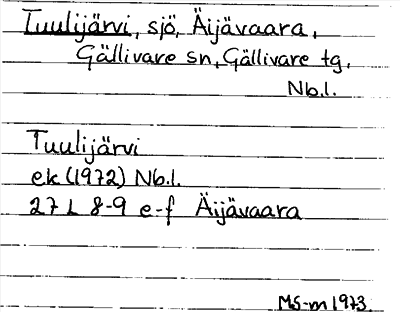 Tuulijärvi, sjö, Äijävaara,
Gällivare sn, Gällivare tg,
Nb.l.
Tuulijärvi
ek (1972) Nb.l.
27 L 8-9 e-f Äijävaara
MS-m 1973.